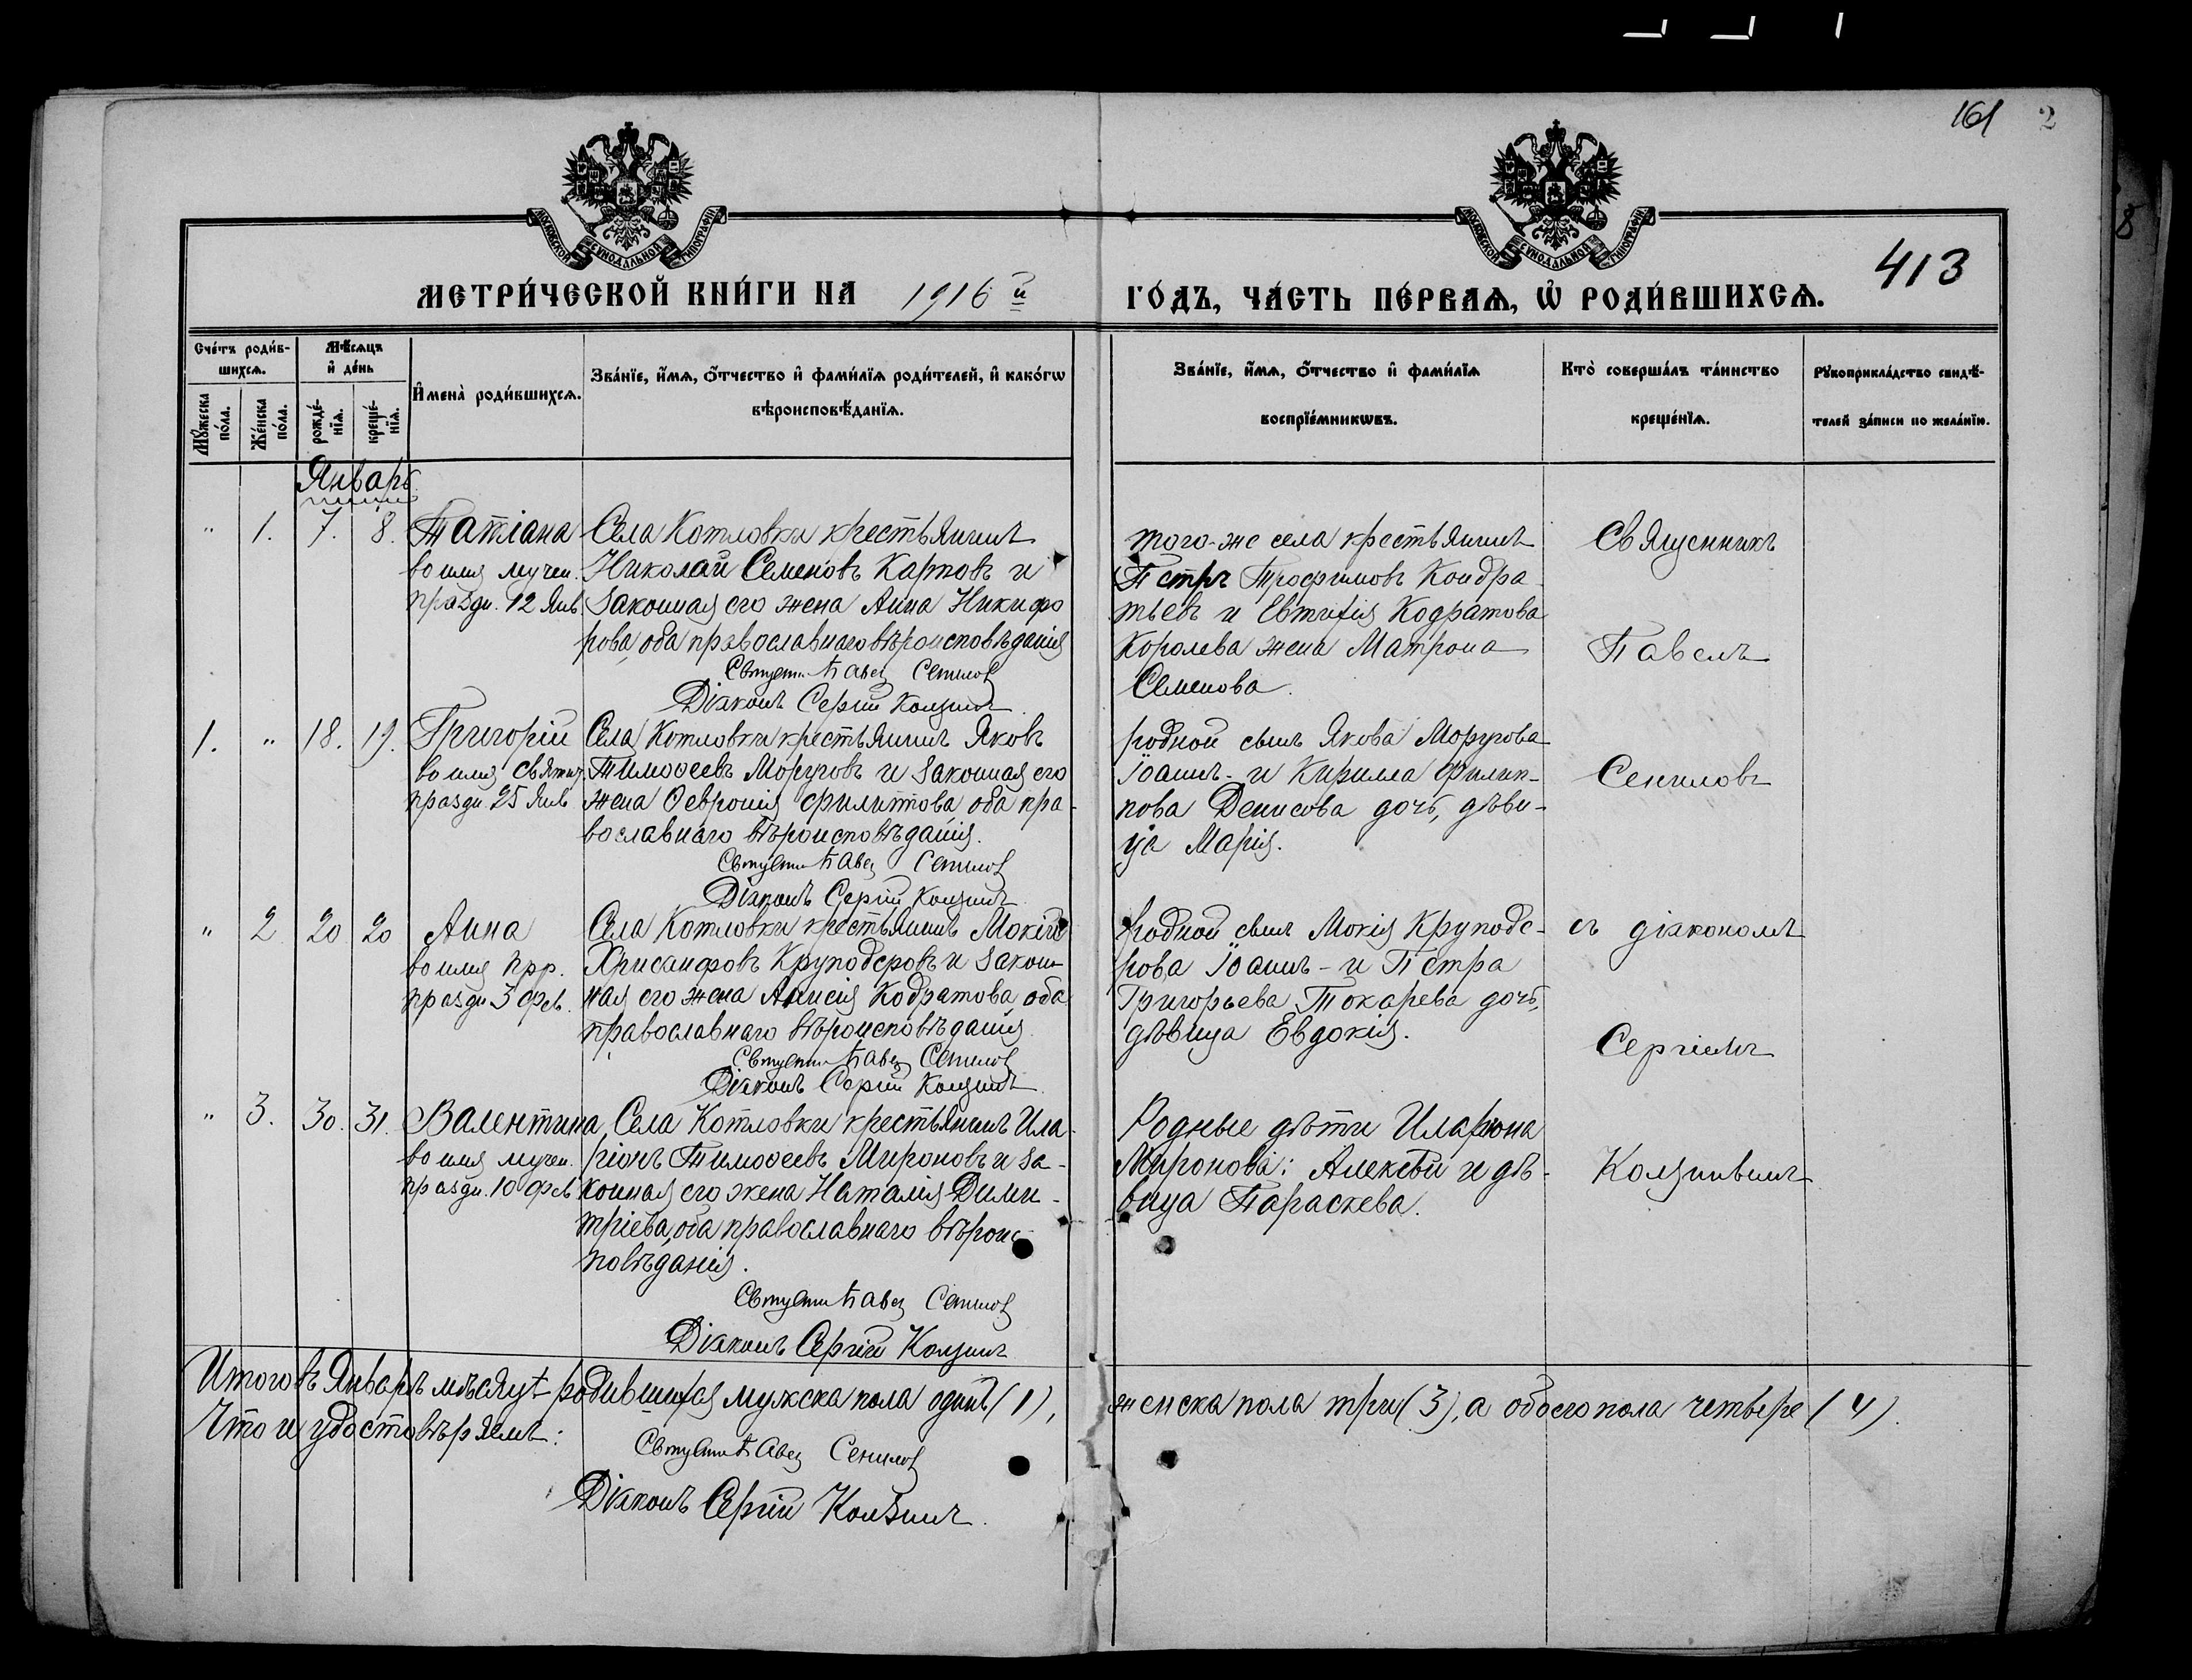 161 2
8
МОСКОВСКОЙ СѴНОДАЛЬНОЙ ТИПОГРАФІИ
МОСКОВСКОЙ СѴНОДАЛЬНОЙ ТИПОГРАФІИ
413
МЕТРИ́ЧЕСКОЙ КНИ́ГИ НА 1916 й ГО́ДЪ, ЧА́СТЬ ПЕ́РВАѦ, Ѽ РОДИ́ВШИХСѦ.
Сче́тъ роди́в-
шихсѧ.
Мꙋ́жеска по́ла.
Же́нска по́ла.
Мѣ́сѧцъ
и҆ де́нь
рожде́-
нїѧ.
креще́-
нїѧ.
И҆мена̀ роди́вшихсѧ.
Зва́нїе, и҆́мѧ, ѻ҆́тчество и҆ фами́лїѧ роди́телей, и҆ како́гѡ
вѣроисповѣ́данїѧ.
Зва́нїе, и҆́мѧ, ѻ҆́тчество и҆ фами́лїѧ
воспрїе́мникѡвъ.
Кто̀ соверша́лъ та́инство
креще́нїѧ.
Рꙋкоприкла́дство свидѣ́-
телей за́писи по жела́нїю.
Январь.
" 1. 7. 8.
Татіана
во имя мучен.
праздн. 12 Янв.
Села Котловки крестьянинъ
Николай Семеновъ Карповъ и
законная его жена Анна Никифо
рова, оба православнаго вѣроисповѣданія
Священ. Павел Сенилов
Діаконъ Сергій Колзинъ.
того-же села крестьянинъ
Петръ Трофимовъ Кондра-
тьевъ и Евтихія Кодратова
Королева жена Матрона
Семенова.
Священникъ
Павелъ
1. " 18. 19.
Григорій
во имя Святит.
праздн. 25 Янв
Села Котловки крестьянинъ Яковъ
Тимоѳеевъ Моруговъ и законная его
жена Ѳевронія Филиппова оба пра-
вославнаго вѣроисповѣданія.
Священ Павел Сенилов
Діаконъ Сергій Колзинъ
родной сынъ Якова Моругова
Іоаннъ- и Кирилла Филип-
пова Денисова дочь, дѣви-
ца Марія.
Сениловъ
" 2 20 20
Анна
во имя прр.
праздн 3 фев.
Села Котловки крестьянинъ Мокій
Хрисанфовъ Круподеровъ и закон-
ная его жена Анисія Кодратова, оба
православнаго вѣроисповѣданія.
Священ Павел Сенилов
Діаконъ Сергій Колзинъ
родной сынъ Мокія Круподе-
рова Іоаннъ- и Петра
Григорьева Токарева дочь,
дѣвица Евдокія.
съ діакономъ
Сергіемъ
" 3. 30. 31.
Валентина
во имя мучен.
праздн. 10 фев
Села Котловки крестьянинъ Ила-
ріонъ Тимоѳеевъ Мироновъ и за-
конная его жена Наталія Дими-
тріева, оба православнаго вѣроис-
повѣданія.
Священ Павел Сенилов
Діаконъ Сергій Колзинъ
Родные дѣти Иларіона
Миронова: Алексѣй и дѣ-
вица Параскева.
Колзинымъ
Итого въ Январѣ мѣсяцѣ родившихся мужска пола одинъ (1), женска пола три (3), а обоего пола четверо (4).
Что и удостовѣряемъ:
Священ Павел Сенилов
Діаконъ Сергій Колзинъ.